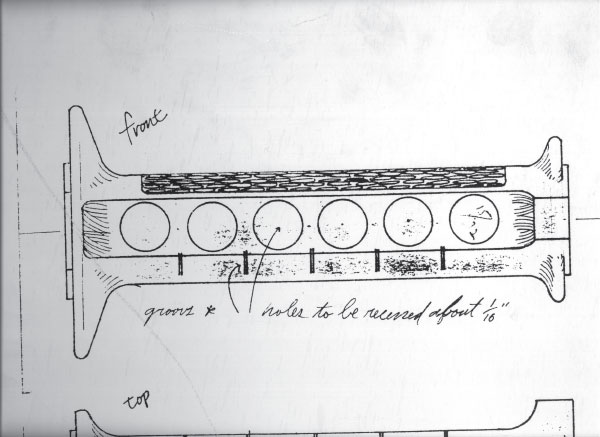 front
groove * holes to be recessed about 1/16"
top